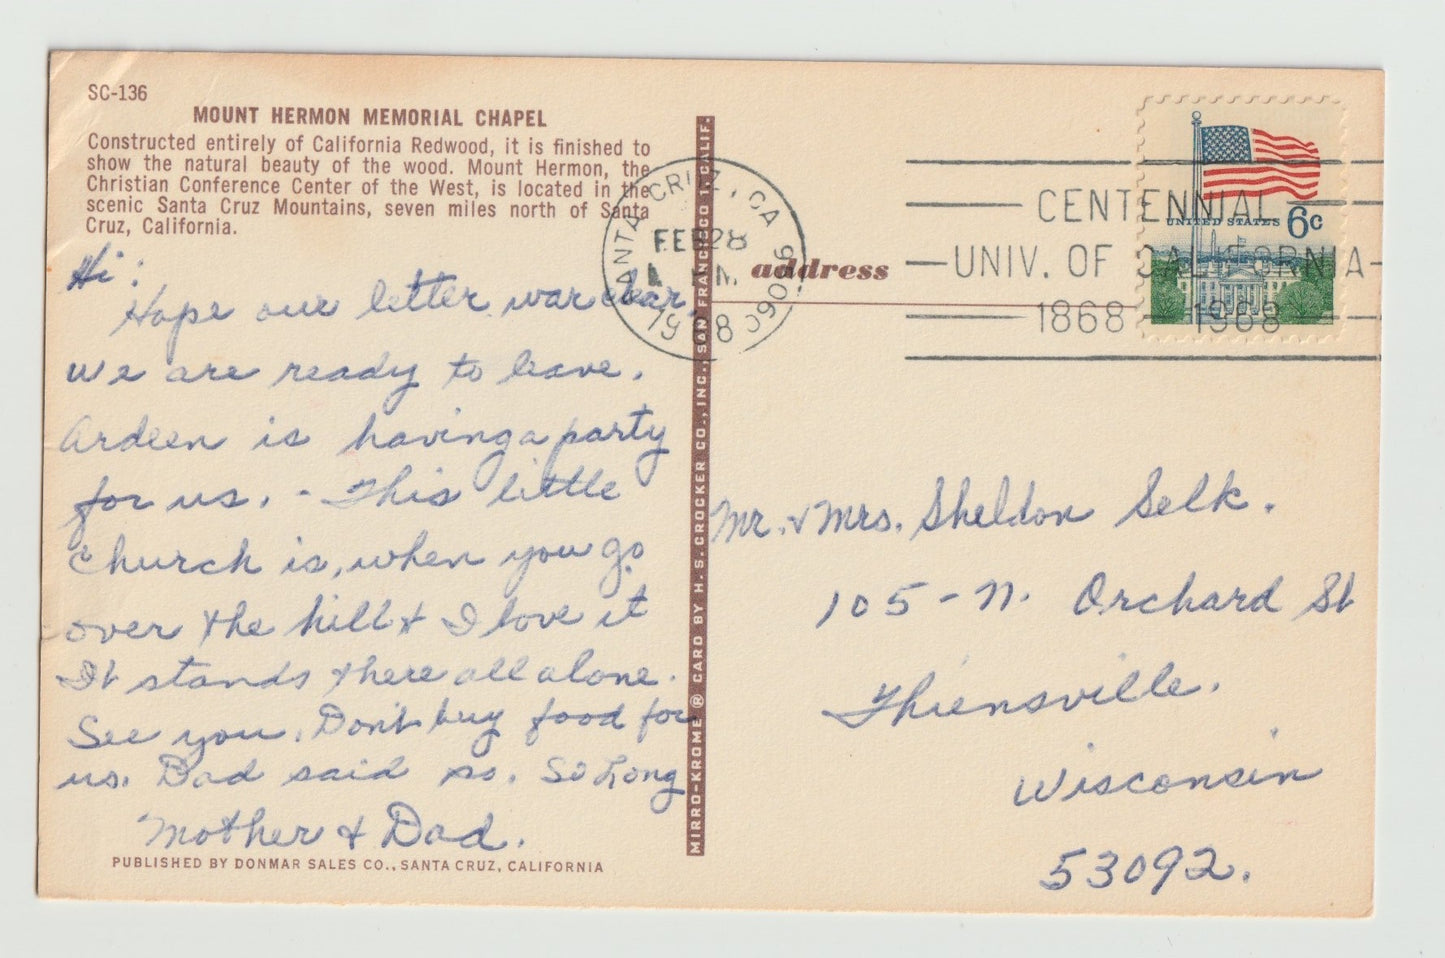 SC-136
MOUNT HERMON MEMORIAL CHAPEL
Constructed entirely of California Redwood, it is finished to
show the natural beauty of the wood. Mount Hermon, the
Christian Conference Center of the West, is located in the
scenic Santa Cruz Mountains, seven miles north of Santa
Cruz, California.
Hi:
Hope our letter was clear.
we are ready to leave.
Ardeen is having a party
for us. - This little
church is, when you go
over the hill & I love it
It stands there all alone.
See you. Don't buy food for
us. Dad said so. So Long
Mother & Dad.
PUBLISHED BY DONMAR SALES CO., SANTA CRUZ, CALIFORNIA
MIRRO-KROME ® CARD BY H. S. CROCKER CO., INC., SAN FRANCISCO 1, CALIF.
SANTA CRUZ, CA 95060
FEB 28
M
1968
address
CENTENNIAL
UNIV. OF CALIFORNIA
1868 - 1968
UNITED STATES 6c
Mr. & Mrs. Sheldon Selk.
105 - N. Orchard St
Thiensville.
Wisconsin
53092.